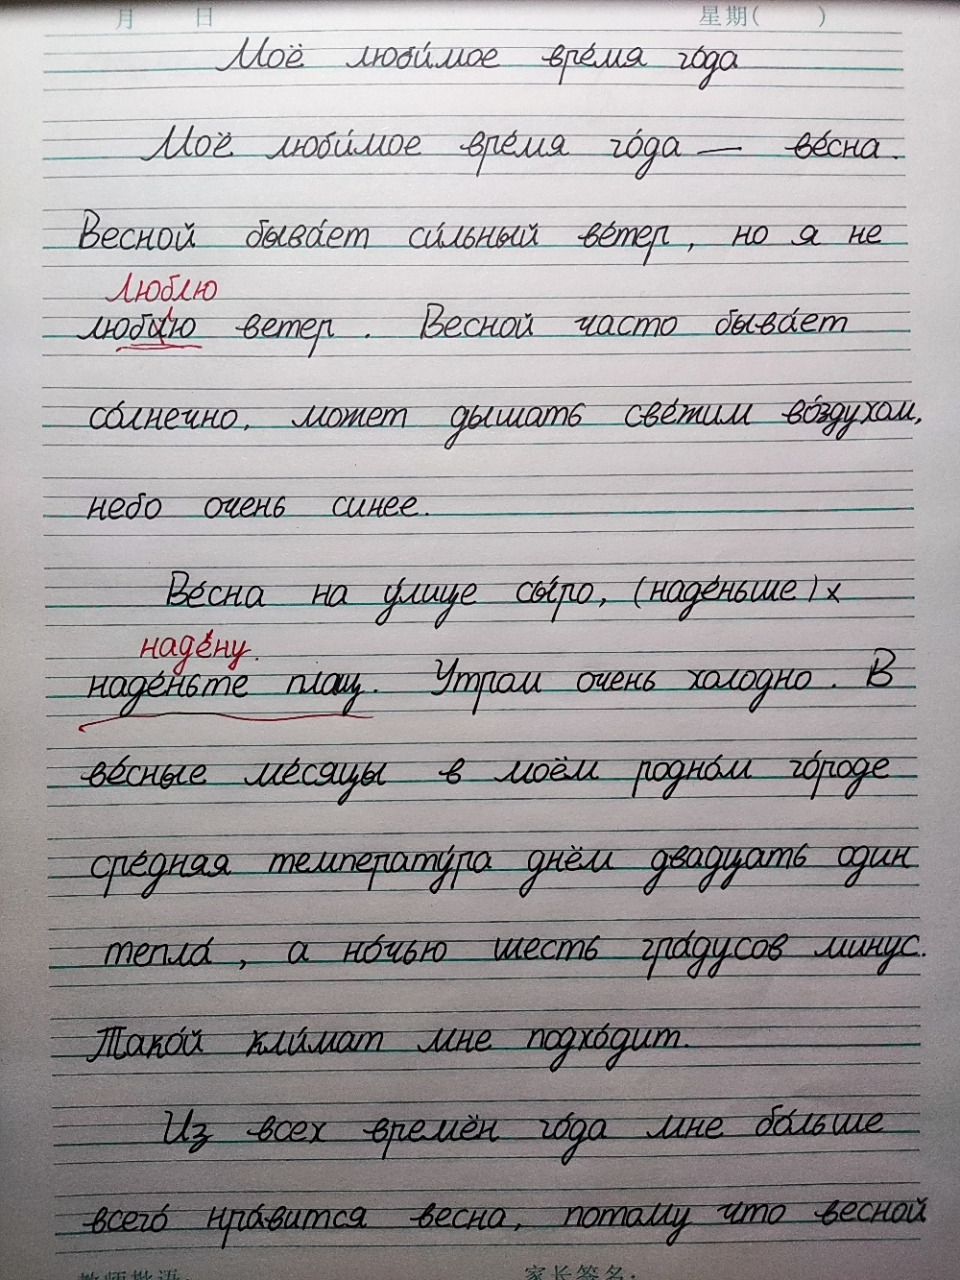 月 日 星期( )
Моё люби́мое вре́мя го́да
Моё люби́мое вре́мя го́да — ве́сна.
Весной быва́ет си́льный ве́тер, но я не
люблю
ветер. Весной часто быва́ет
со́лнечно, может дышать све́жим во́здухом,
небо очень синее.
Ве́сна на у́лице сы́ро, (наде́ньше) x
наде́ну.
наде́ньте плащ. Утром очень холодно. В
ве́сные ме́сяцы в моём родно́м го́роде
сре́дняя температу́ра днём двадцать один
тепла́, а но́чью шесть гра́дусов минус.
Тако́й кли́мат мне подхо́дит.
Из всех времён го́да мне бо́льше
всего́ нра́вится весна, потому что весной
教师批语: 家长签名: